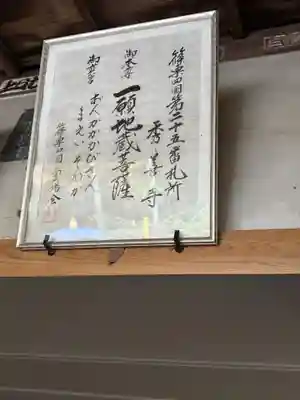 篠栗四国第二十五番札所
秀善寺
御本尊
一願地蔵菩薩
御真言
おんかかかびさん
まえいそわか
篠栗四国霊場会